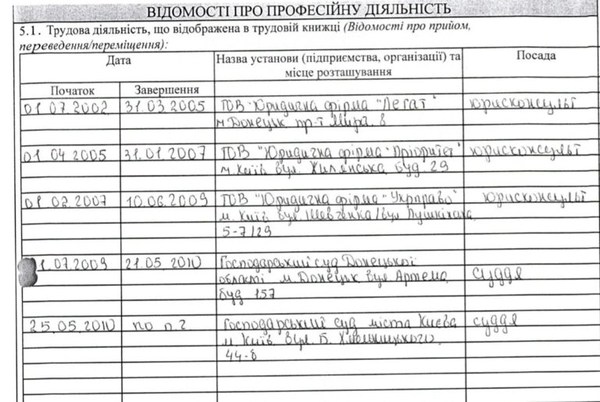 ВІДОМОСТІ ПРО ПРОФЕСІЙНУ ДІЯЛЬНІСТЬ
5.1. Трудова діяльність, що відображена в трудовій книжці (Відомості про прийом,
переведення/переміщення):
Дата Назва установи (підприємства, організації) та Посада
місце розташування
Початок Завершення
01.07.2002 31.03.2005 ТОВ "Юридична фірма "Легат" юрисконсульт
м Донецьк пр-т Мира 8
01 04 2005 31.01.2007 ТОВ "Юридична фірма "Пріоритет" юрисконсульт
м Київ вул Жилянська буд 29
01 02 2007 10.06.2009 ТОВ "Юридична фірма "Укрправо" юрисконсульт
м Київ вул Шевченка/вул Пушкінська
5-7/29
1.07.2009 21.05 2010 Господарський суд Донецької
області м Донецьк вул Артема суддя
буд 157
25.05.2010 по п.ч Господарський суд міста Києва суддя
м Київ вул. Б. Хмельницького,
44-В